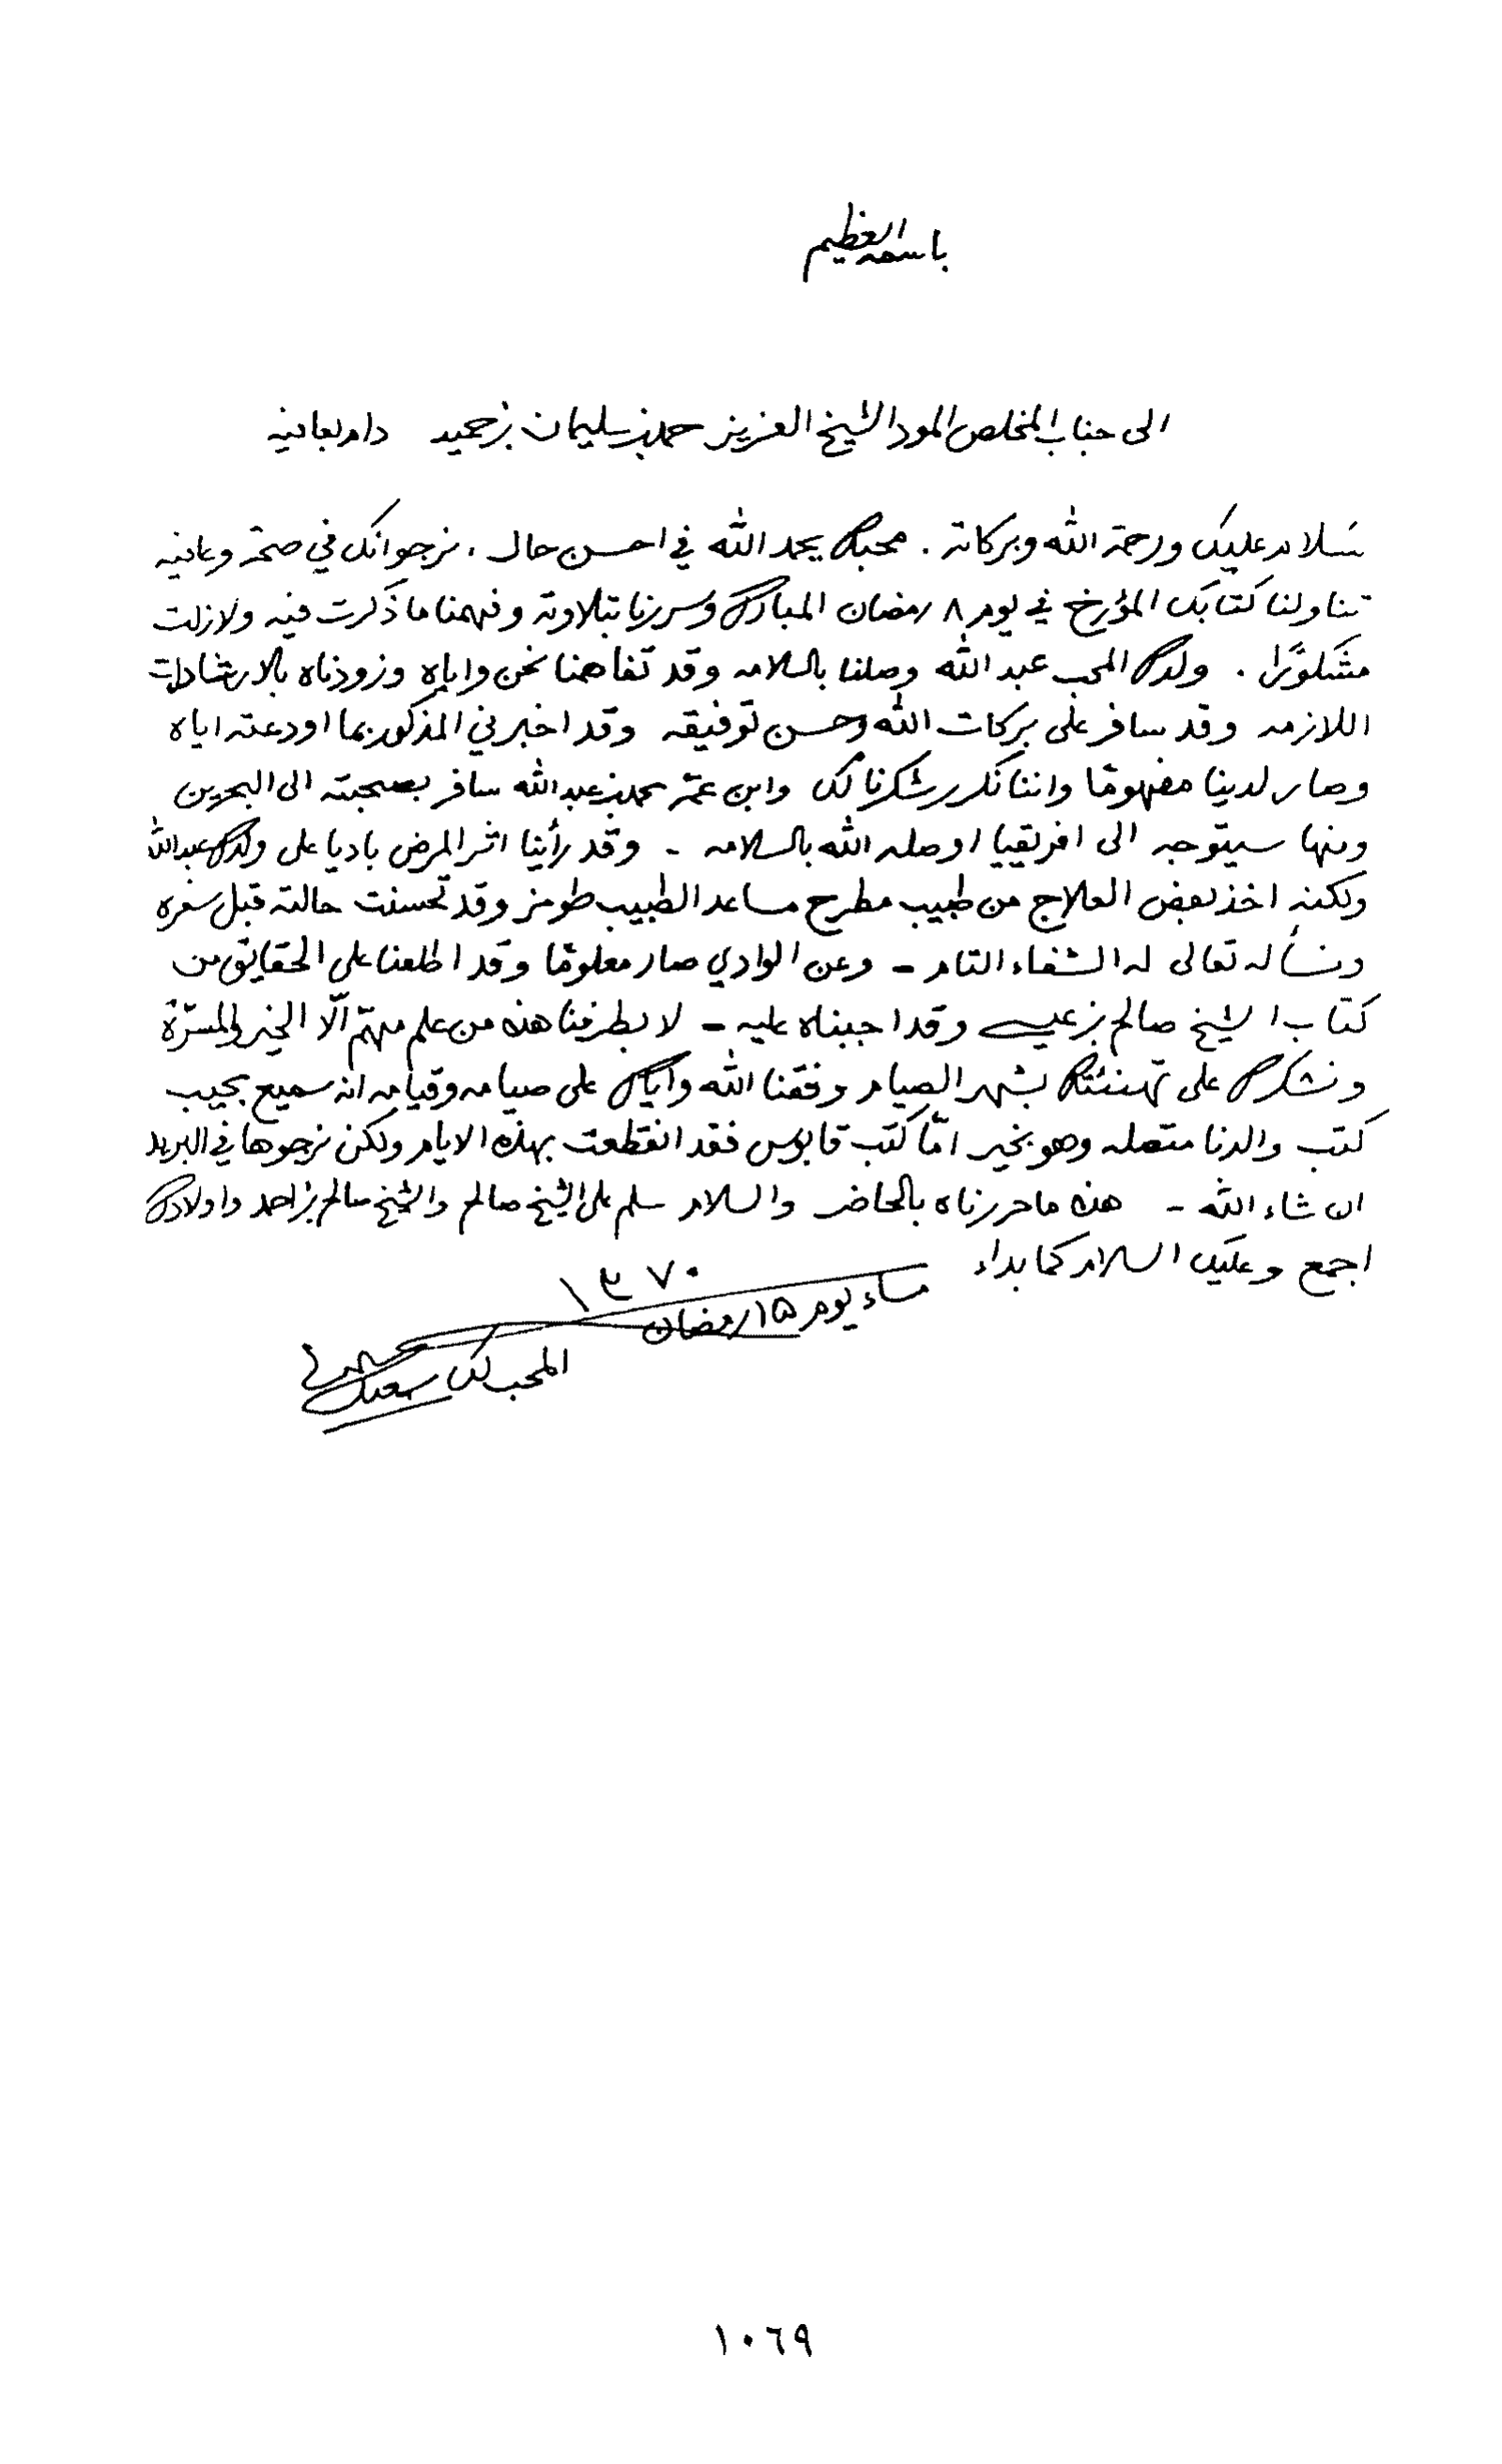 باسمه العظيم
الى جناب المخلص المود الشيخ العزيز حمد بن سليمان بن حميد دام بعافيه
سلام عليك ورحمة الله وبركاته . محبك بحمد الله في احسن حال . نرجو انك في صحة وعافيه
تناولنا كتابك المؤرخ في يوم ٨ رمضان المبارك وسررنا بتلاوته وفهمنا ما ذكرت فيه ولا زلت
مشكورًا . ولدك المحب عبد الله وصلنا بالسلامه وقد تفاهمنا نحن واياه وزودناه بالارشادات
اللازمه وقد سافر على بركات الله وحسن توفيقه وقد اخبرني المذكور بما اودعته اياه
وصار لدينا مفهومًا واننا نكرر شكرنا لك وابن عمّه محمد بن عبد الله سافر بصحبته الى البحرين
ومنها سيتوجه الى افريقيا اوصله الله بالسلامه - وقد رأينا اثر المرض باديا على ولدك عبد الله
ولكنه اخذ بعض العلاج من طبيب مطرح مساعد الطبيب طومز وقد تحسنت حالته قبل سفره
ونسأله تعالى له الشفاء التام - وعن الوادي صار معلومًا وقد اطلعنا على الحقايق من
كتاب الشيخ صالح بن عيسى وقد اجبناه عليه - لا بطرفنا هذه من علم مهتم الّا الخير والمسرّة
ونشكرك على تهنئتك بشهر الصيام وفقنا الله واياك على صيامه وقيامه انه سميع مجيب
كتب والدنا متصله وهو بخير امّا كتب قابوس فقد انقطعت بهذه الايام ولكن نرجوها في البريد
ان شاء الله - هذه ما حررناه بالحاضر والسلام سلم على الشيخ صالح والشيخ سالم بن احمد واولادك
اجمع وعليك السلام كما بداء
مساء يوم ١٥ رمضان ١٣٧٠
المحب لك سعيد
١٠٦٩